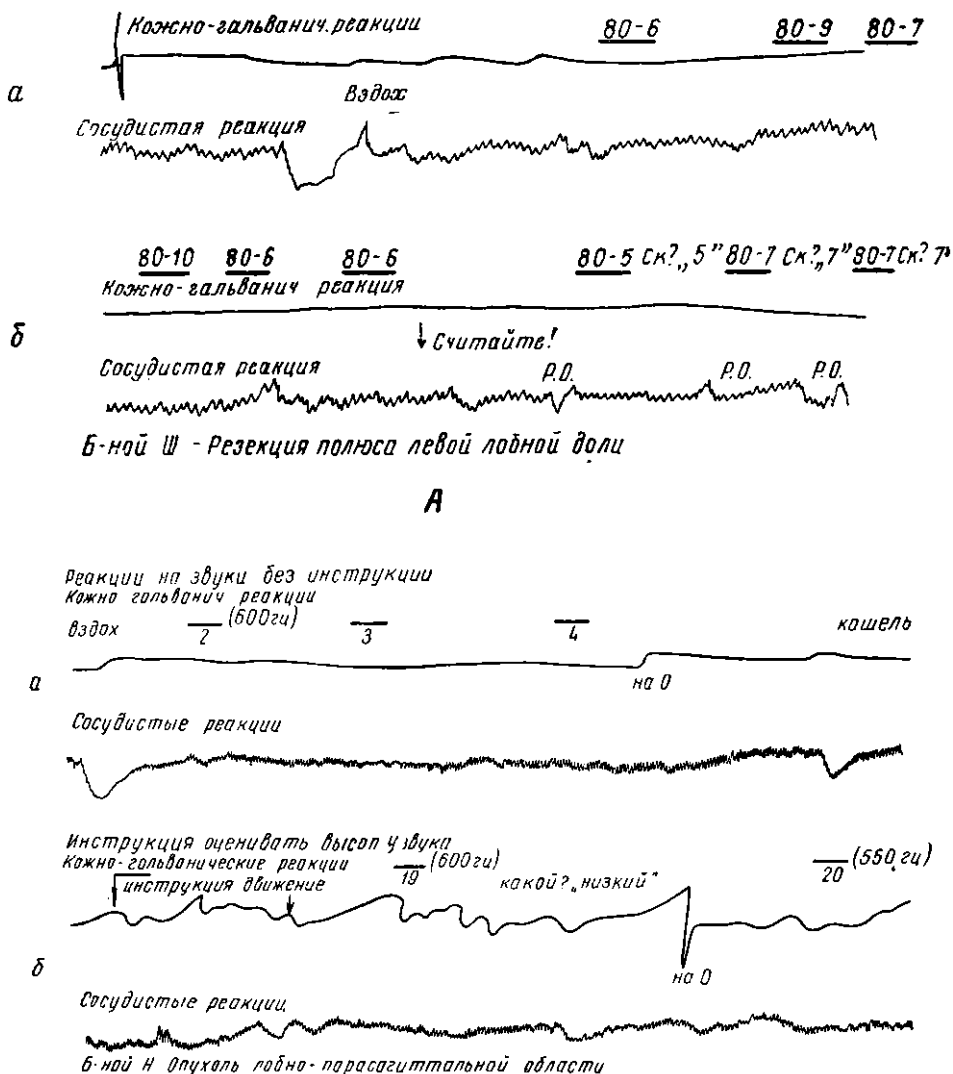 Кожно-гальванич. реакции 80-6 80-9 80-7
а
Вздох
Сосудистая реакция
80-10 80-6 80-6 80-5 Ск? „5” 80-7 Ск? „7” 80-7 Ск? 7”
Кожно-гальванич реакция
б
Считайте!
Сосудистая реакция Р.О. Р.О. Р.О.
Б-ной Ш - Резекция полюса левой лобной доли
А
Реакции на звуки без инструкции
Кожно гальванич реакции
вздох 2 (600гц) 3 4 кашель
а
на 0
Сосудистые реакции
Инструкция оценивать высоту звука
Кожно-гальванические реакции 19 (600гц) 20 (550 гц)
инструкция движение какой? „низкий”
б
на 0
Сосудистые реакции
Б-ной Н Опухоль лобно-парасагиттальной области